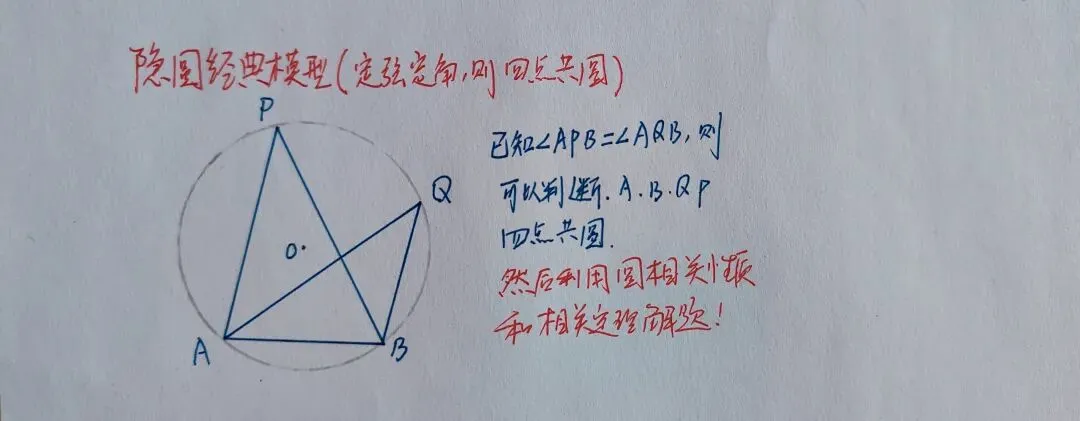 隐圆经典模型(定弦定角,则四点共圆)
P
已知∠APB=∠AQB,则
Q
可以判断.A.B.Q P
四点共圆.
O
然后利用圆相关性质
和相关定理解题!
A
B